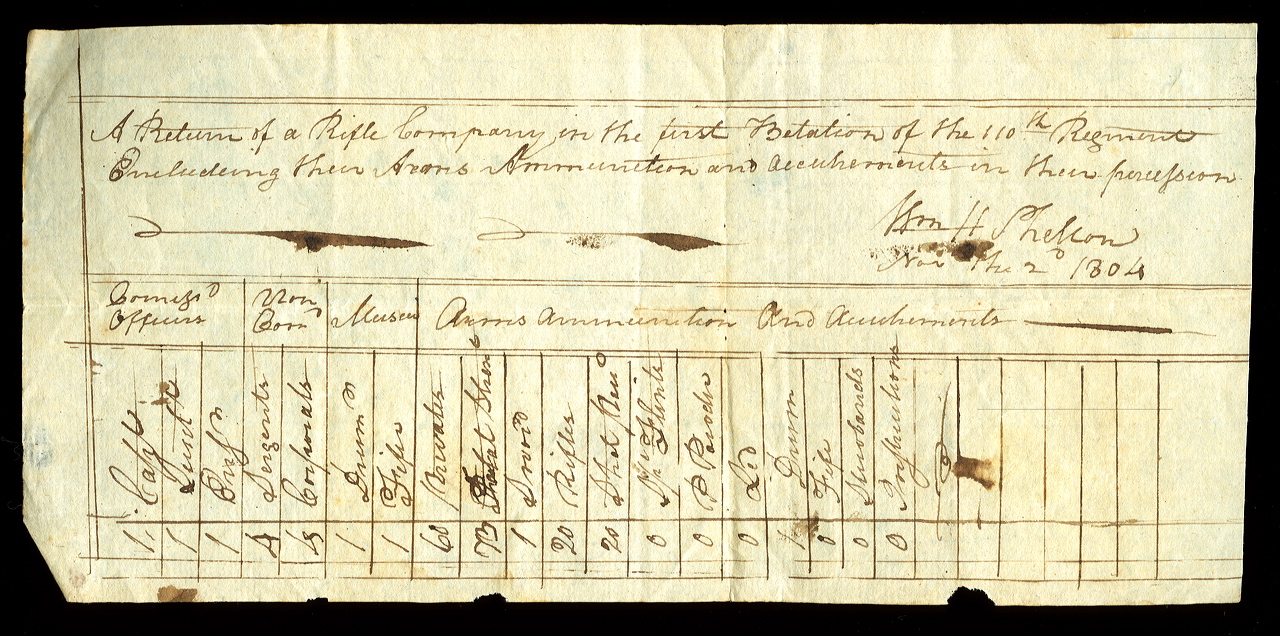 A Return of a Rifle Company in the first Betation of the 110th Regiment
Encludeing their Arms Ammunition and accuhements in their persession
Wm H Shelton
Nov the 2d 1804
Comessd Officers
Non Comd
Museu
Arms ammunition And accuhements
Capt
Lieut
Ensn
Sergents
Corporals
Drumr
Fifer
Privates
Total Stren
Sword
Rifles
Shot
Flints
P
Led
Drum
Fife
1
1
1
4
4
1
1
60
73
1
20
20
0
0
0
1
0
0
0